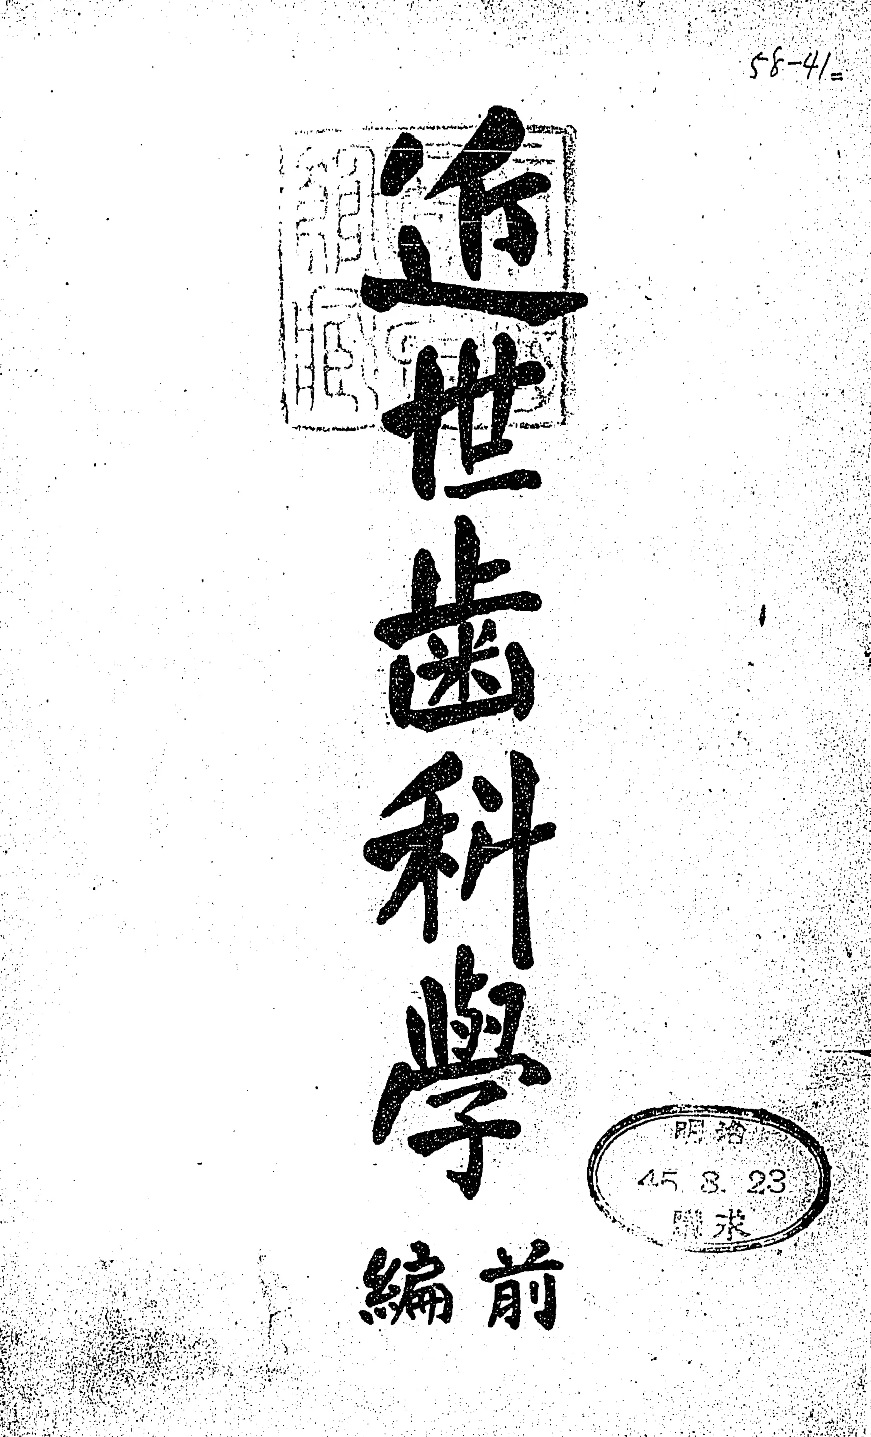 58-41
近世歯科學
前編
明治
45. 8. 23
購求